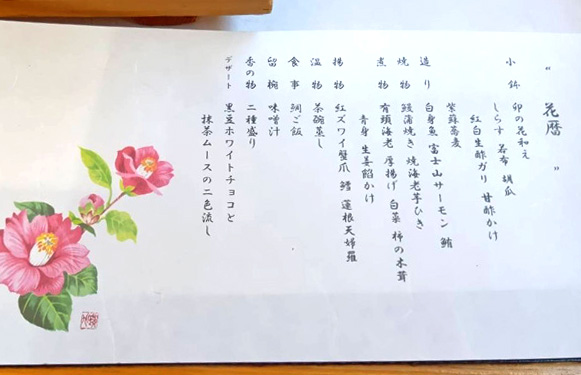 “ 花暦 ”
小鉢 卯の花和え
しらす 若布 胡瓜
紅白生酢ガリ 甘酢かけ
紫蘇蕎麦
造り 白身魚 富士山サーモン 鮪
焼物 鰻蒲焼き 焼海老芋ひき
煮物 有頭海老 厚揚げ 白菜 柿の木茸
青身 生姜餡かけ
揚物 紅ズワイ蟹爪 鱈 蓮根天婦羅
温物 茶碗蒸し
食事 鯛ご飯
留椀 味噌汁
香の物 二種盛り
デザート 黒豆ホワイトチョコと
抹茶ムースの二色流し